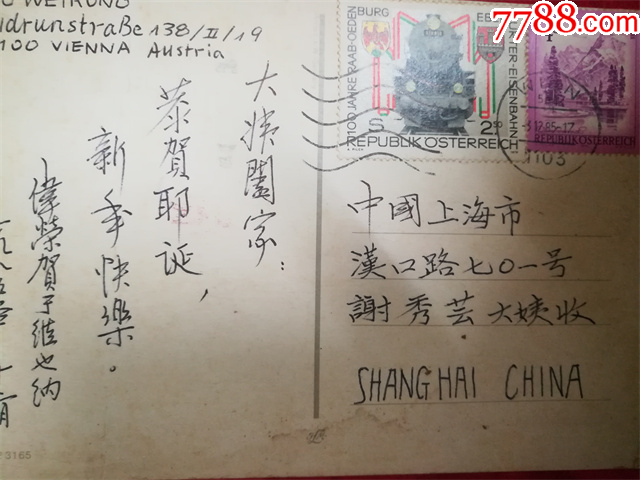 7788.com
WEIRONG
drunstraße 138/II/19
100 VIENNA Austria
大姨闔家：
恭賀耶誕，
新年快樂。
偉榮賀于維也納
100 JAHRE RAAB-OEDENBURG
EBENFURTER-EISENBAHN
S 2.50
REPUBLIK ÖSTERREICH
REPUBLIK ÖSTERREICH
1103
中國上海市
漢口路七０一号
謝秀芸大姨收
SHANGHAI CHINA
3165